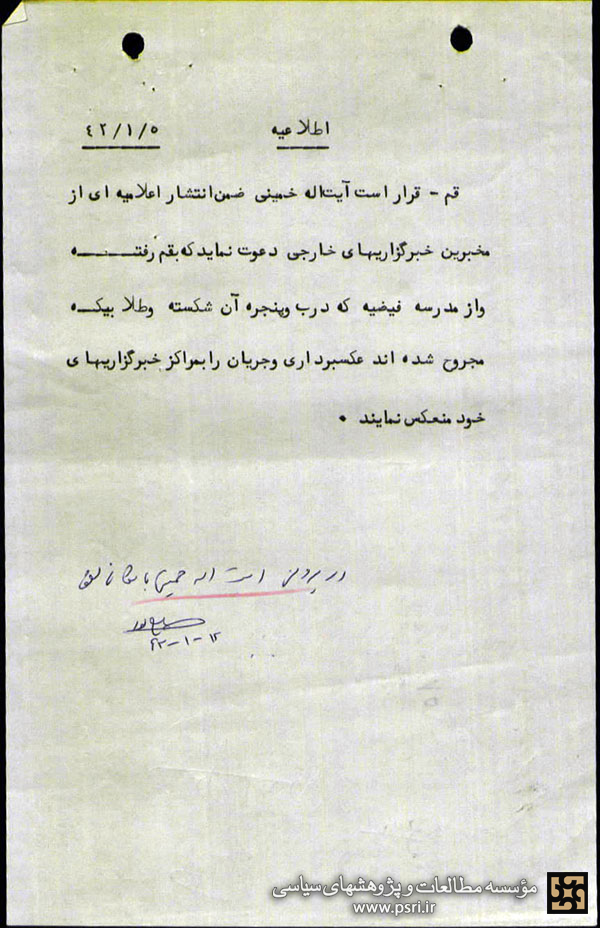 اطلاعیه ۴۲/۱/۵
قم - قرار است آیت‌اله خمینی ضمن انتشار اعلامیه ای از
مخبرین خبرگزاریهای خارجی دعوت نماید که بقم رفتــــــه
واز مدرسه فیضیه که درب وپنجره آن شکسته وطلا بیکــه
مجروح شده اند عکسبرداری وجریان را بمراکز خبرگزاریهای
خود منعکس نمایند .
در پرونده
۴۲-۱-۱۲
مؤسسه مطالعات و پژوهشهای سیاسی
www.psri.ir